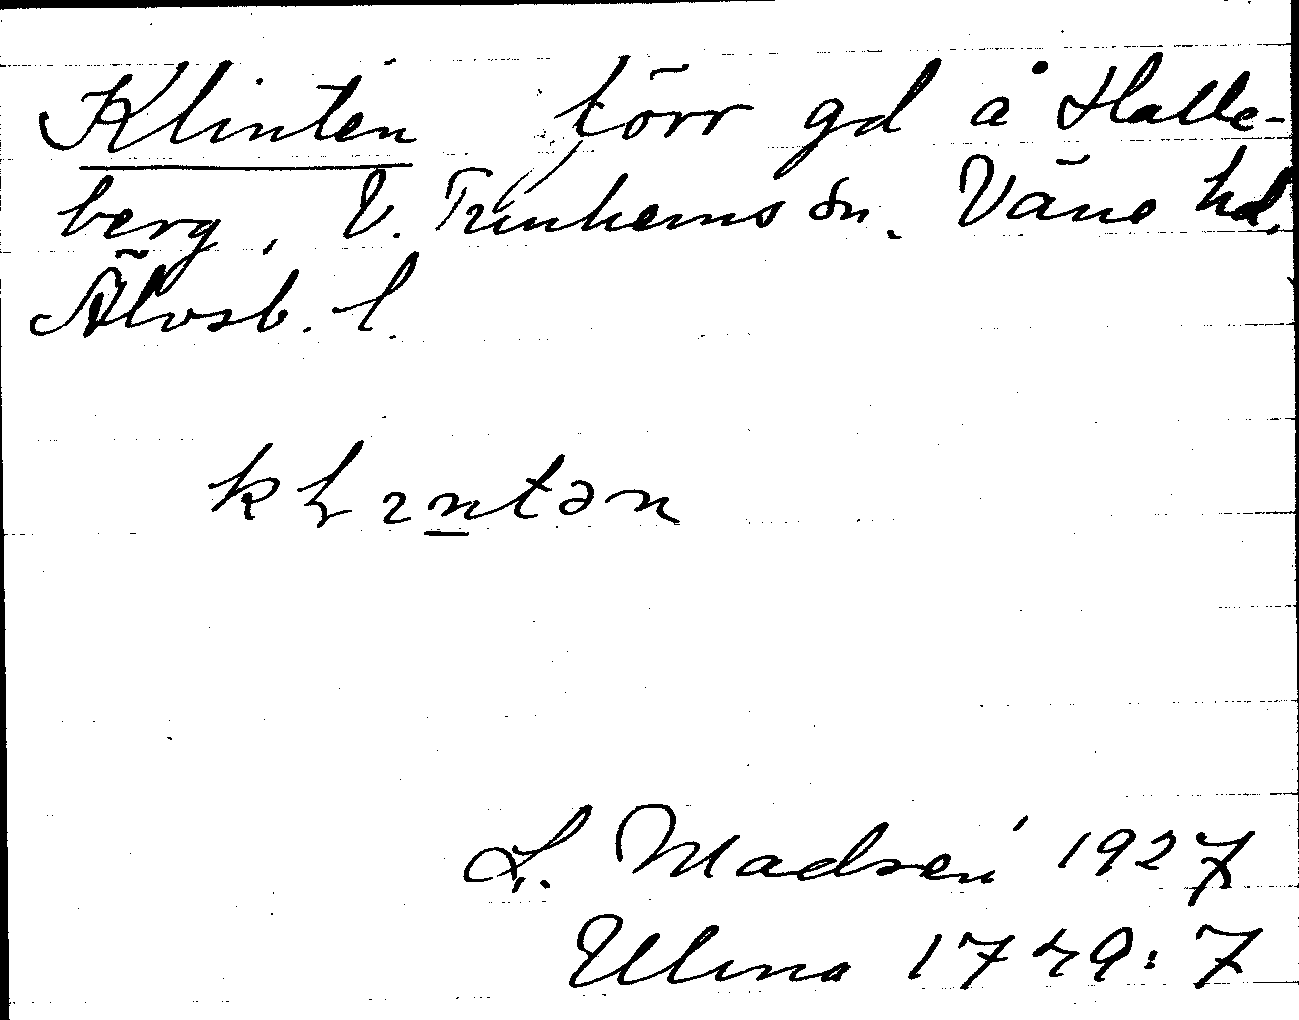 Klinten förr gd å Halle-
berg, V. Tunhems sn. Väne hd,
Älvsb. l.
kl̥ɩntən
L. Madsen 1927
Ulma 1749:7